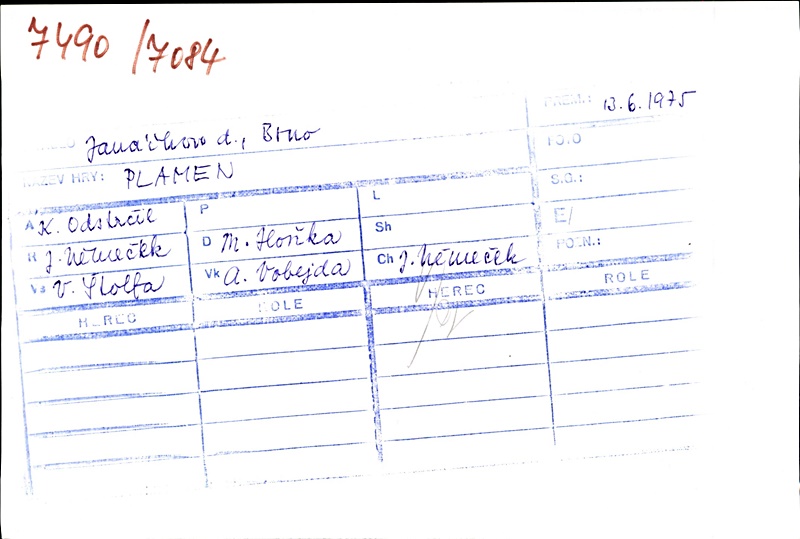 7490 / 7084
PREM.: 13.6.1975
Janáčkovo d., Brno
NÁZEV HRY: PLAMEN
S.G.:
E/
POZN.:
A K. Odstrčil P L
R J. Němeček D M. Hoňka Sh
Vs V. Štolfa Vk A. Vobejda Ch J. Němeček
HEREC ROLE HEREC ROLE